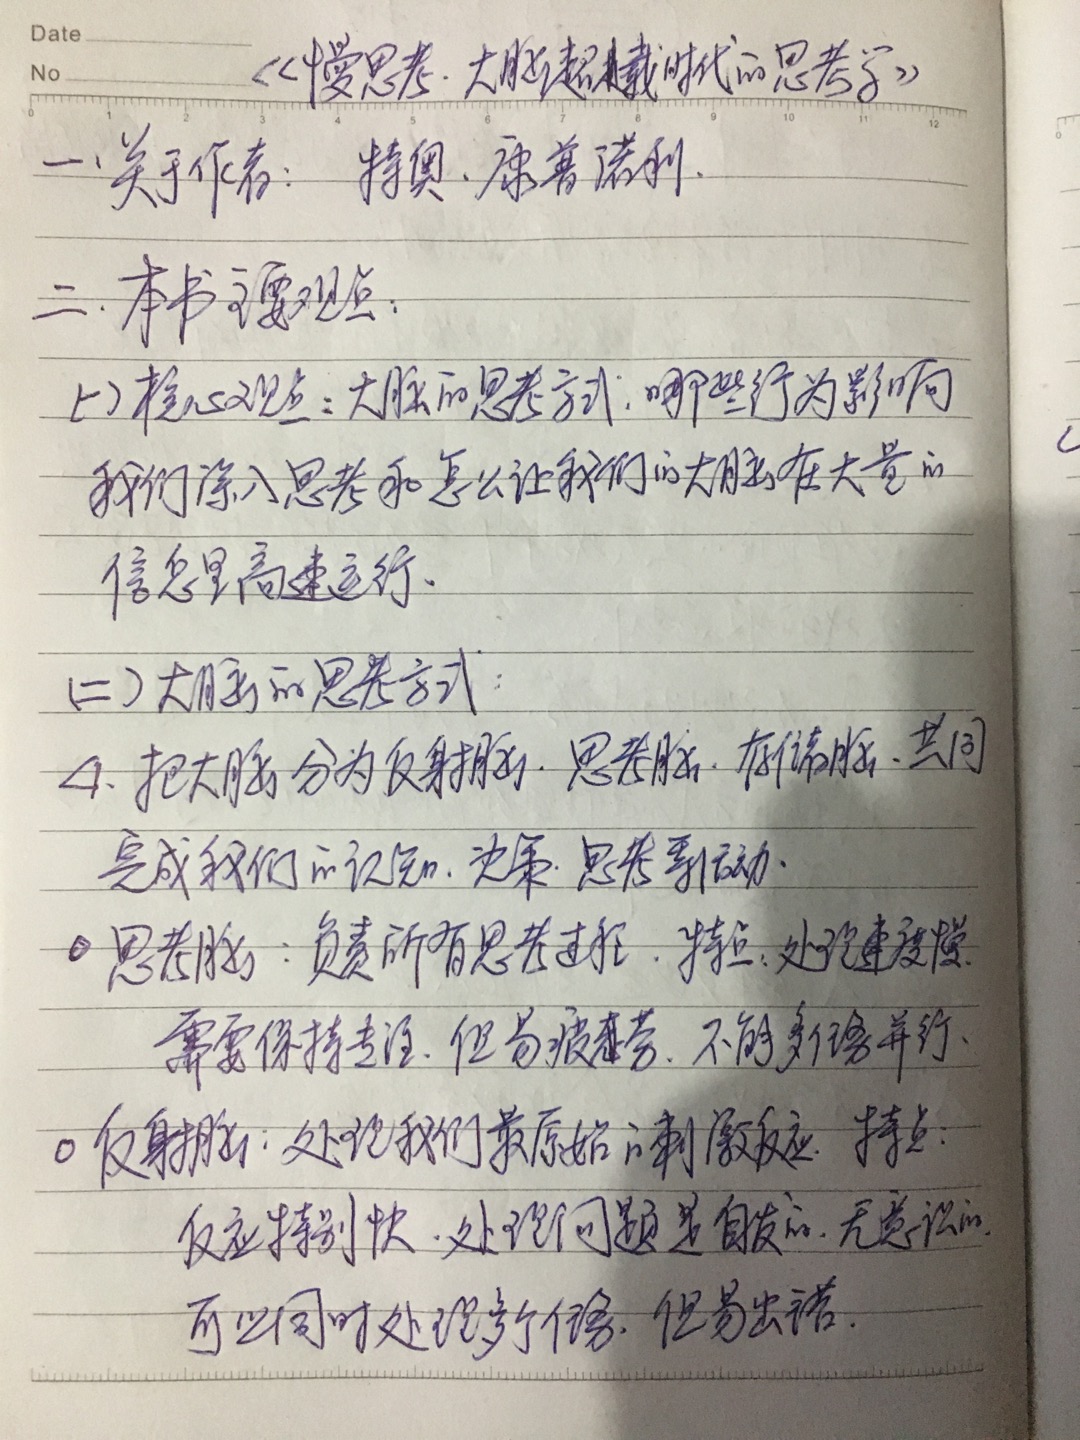 Date
No
《慢思考·大脑超载时代的思考学》
0 1 2 3 4 5 6 7 8 9 10 11 12
一、关于作者: 特奥·康普诺利.
二、本书主要观点:
(一)核心观点:大脑的思考方式,哪些行为影响
我们深入思考和怎么让我们的大脑在大量的
信息里高速运行.
(二)大脑的思考方式:
1、把大脑分为反射脑.思考脑.存储脑、共同
完成我们的认知、决策.思考到行动.
思考脑:负责所有思考过程.特点:处理速度慢.
需要保持专注.但易疲劳.不能多任务并行、
反射脑:处理我们最原始的刺激反应.特点:
反应特别快.处理问题是自发的.无意识的.
可以同时处理多个任务.但易出错.